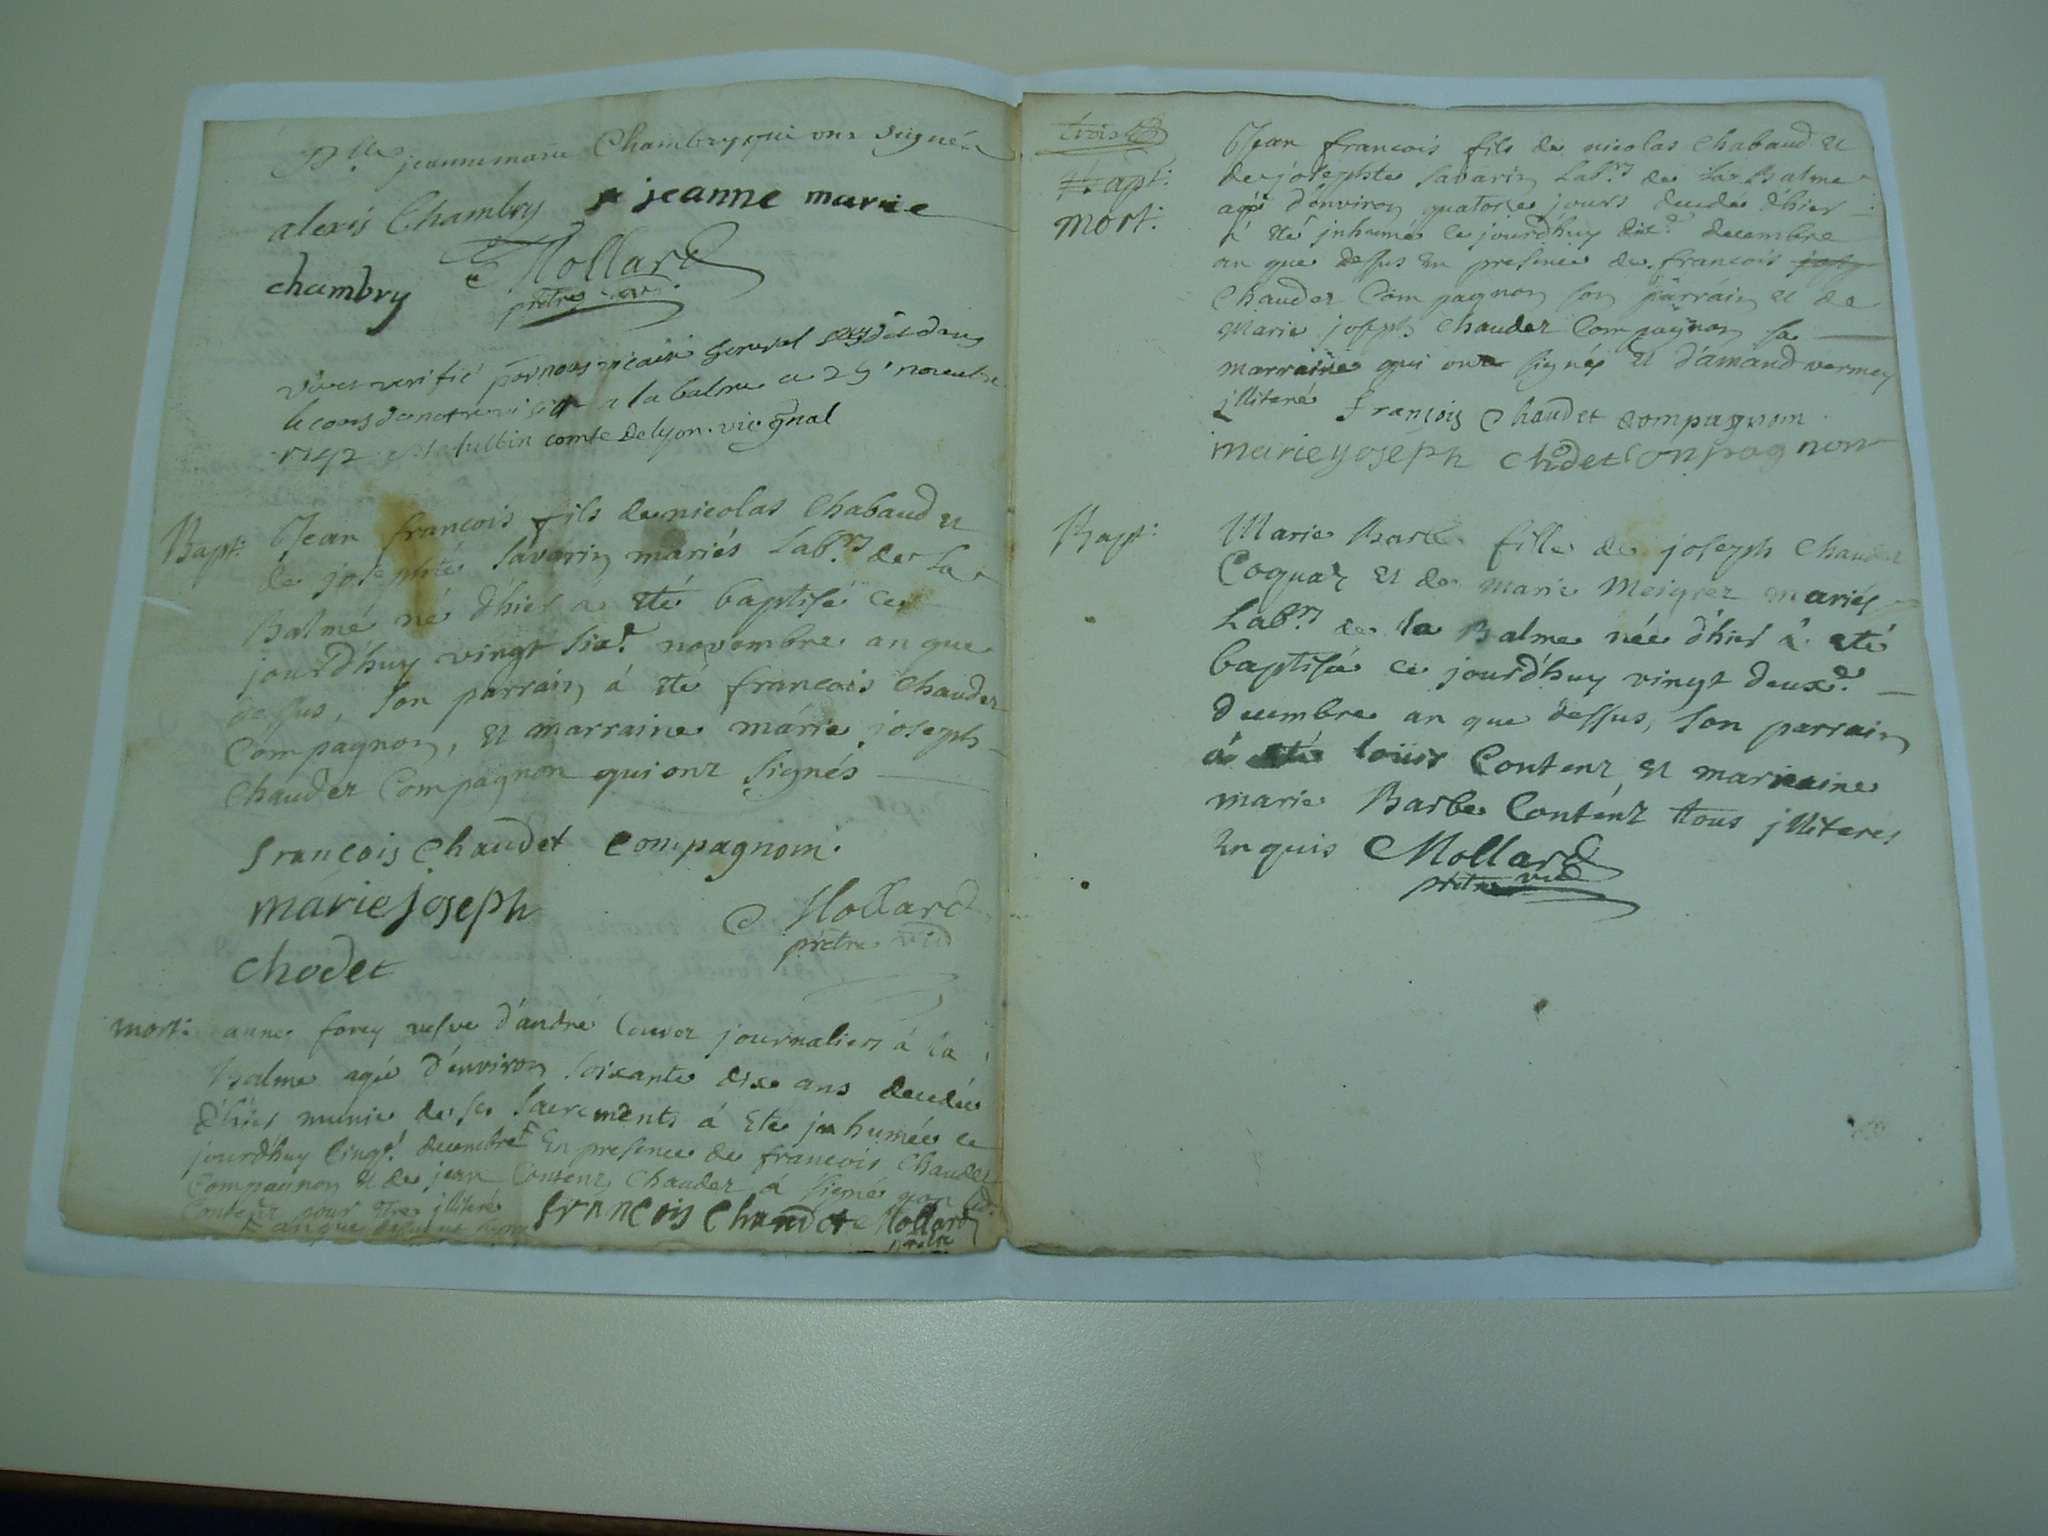 Dlle jeannemarie Chambry qui ont signés
alexis Chambry jeanne marie
chambry Mollard
prêtre vic.
veu et verifié par nous vicaire general
le cours de notre visite a la balme ce 29 novembre
1742 comte de lyon vic gnal
Bapt: Jean francois fils de nicolas Chabaud et
de josephte Savarin mariés Labrs de La
Balme né d'hier a été baptisé ce
jourd'huy vingt six.e novembre an que
dessus, son parrain à été francois Chaudet
Compagnon, et marraine marie joseph
Chaudet Compagnon qui ont signés
francois Chaudet Compagnom
marie joseph
Mollard
prêtre vic
chodet
mort: anne forey vefve d'andré Couvet journaliers à la
Balme agée d'environ soixante dix ans decedée
d'hier munie de ses sacrements à été inhumée ce
jourd'huy cinq.e decembre En presence de francois Chaudet
Compagnon et de jean Contenz Chaudet à signé non led.
Contenz pour être illiteré
an que dessus francois Chaudet Mollard
prêtre
trois
Bapt:
mort:
Jean francois fils de nicolas Chabaud et
de josephte Savarin Labrs de La Balme
agé d'environ quatorze jours decedé d'hier
à été inhumé ce jourd'huy dix.e decembre
an que dessus en presence de francois
Chaudet Compagnon son parrain et de
Marie joseph Chaudet Compagnon sa
marraine qui ont signés et d'amand vermey
illiteré francois Chaudet compagnom
marie yoseph chodet Conpagnon
Bapt: Marie Barbe fille de joseph Chaudet
Coquaz et de marie Meigrez mariés
Labrs de la Balme née d'hier à été
baptisée ce jourd'huy vingt deux.e
decembre an que dessus, son parrain
à été louis Contenz et marraine
marie Barbe Contenz tous illiteres
Enquis Mollard
prêtre vic